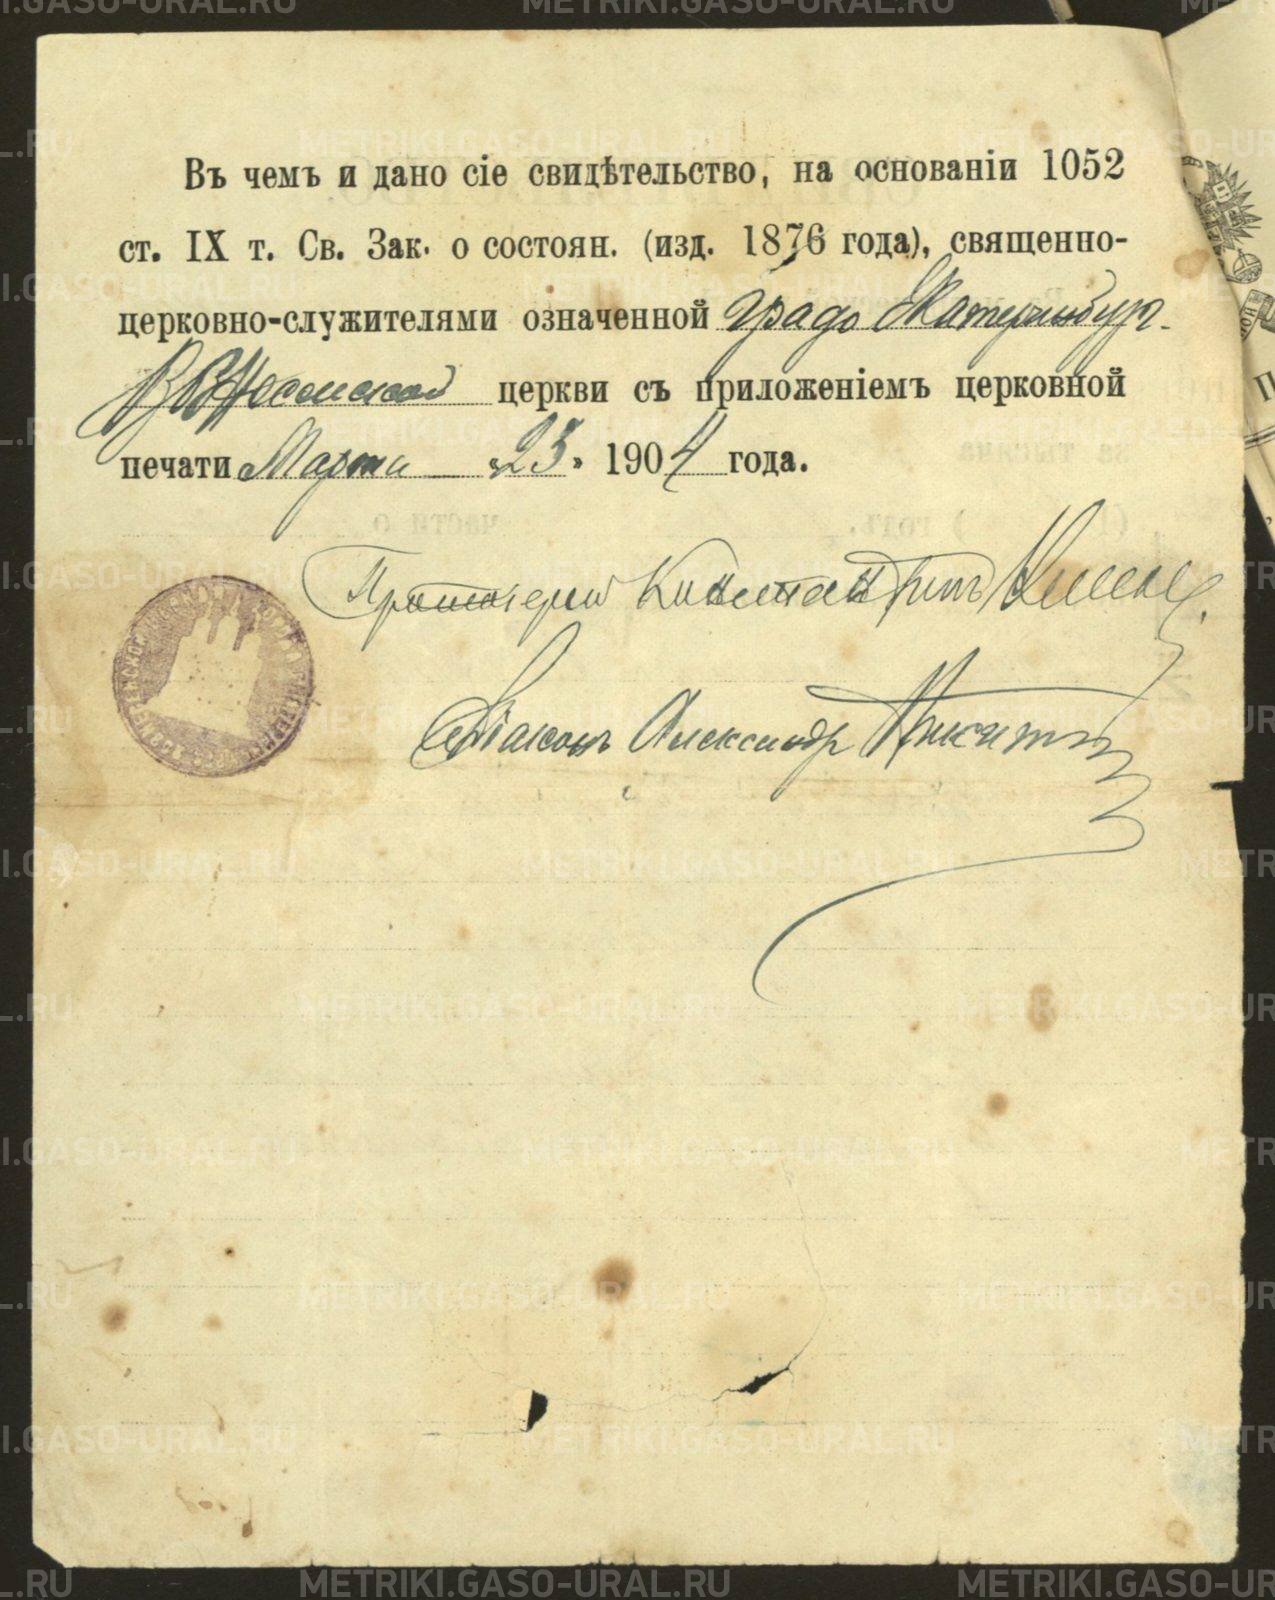 Въ чемъ и дано сіе свидѣтельство, на основаніи 1052
ст. IX т. Св. Зак. о состоян. (изд. 1876 года), священно-
церковно-служителями означенной Градо Екатеринбург.
Вознесенской церкви съ приложеніемъ церковной
печати Марта „23„ 1904 года.
Протоіерей Константинъ
Діаконъ Александр Никитин
METRIKI.GASO-URAL.RU